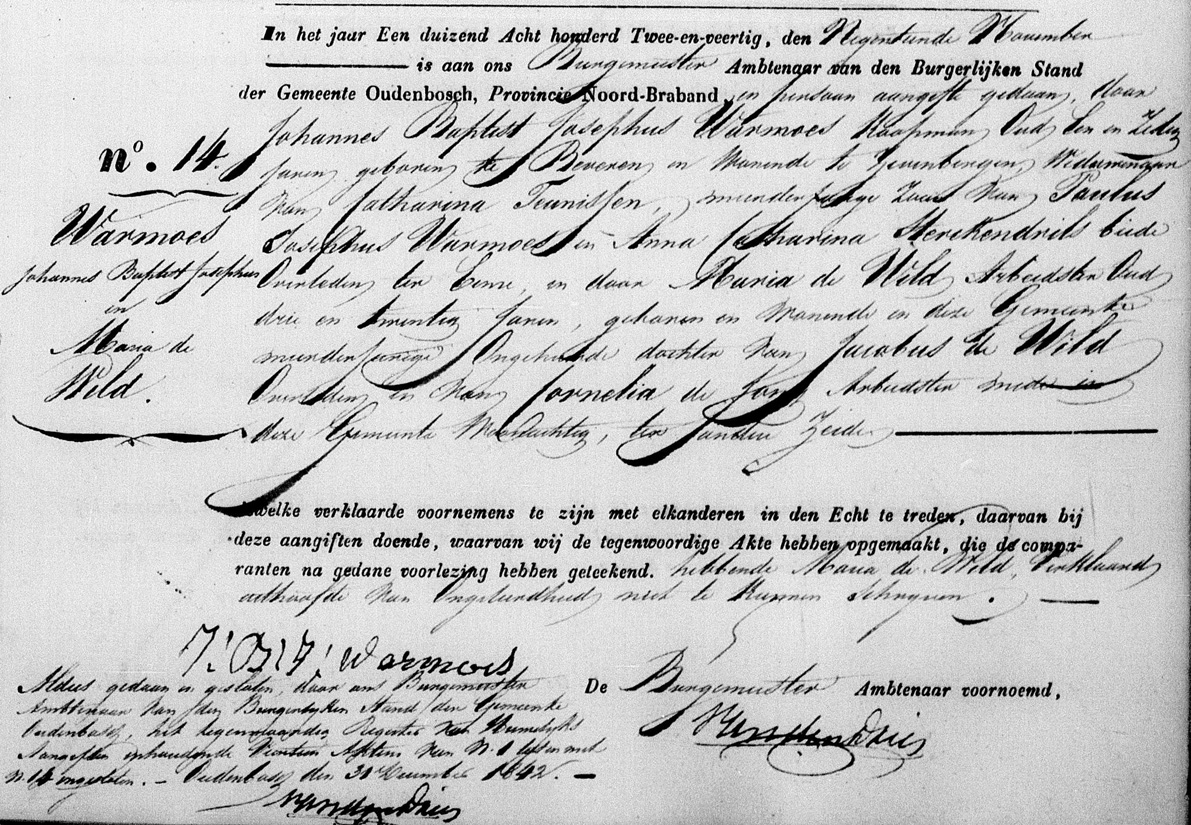 In het jaar Een duizend Acht honderd Twee-en-veertig, den Negentiende November
is aan ons Burgemeester Ambtenaar van den Burgerlijken Stand
der Gemeente Oudenbosch, Provincie Noord-Braband, in persoon aangifte gedaan, door
Johannes Baptist Josephus Warmoes Koopman Oud Een en Zestig
Jaren geboren te Beveren en Wonende te Zevenbergen, Weduwnaar
Van Catharina Teunissen, meerderjarige Zoon Van Paulus
Josephus Warmoes en Anna Catharina beide
Overleden ter Eenre, en door Maria de Wild Arbeidster Oud
drie en twintig Jaren, geboren en Wonende in deze Gemeente
meerderjarige Ongehuwde dochter Van Jacobus de Wild
Overleden en Van Cornelia de Jong Arbeidster mede in
deze Gemeente Woonachtig, ter Andere Zeide
dewelke verklaarde voornemens te zijn met elkanderen in den Echt te treden, daarvan bij
deze aangiften doende, waarvan wij de tegenwoordige Akte hebben opgemaakt, die de compa-
ranten na gedane voorlezing hebben geteekend. hebbende Maria de Wild, Verklaard
uithoofde Van Ongeleerdheid niet te Kunnen Schryven.
n°. 14.
Warmoes
Johannes Baptist Josephus
en
Maria de
Wild.
J:B:J: Warmoes
De Burgemeester Ambtenaar voornoemd,
Aldus gedaan en gesloten, door ons Burgemeester
Ambtenaar Van den Burgerlyken Stand der Gemeente
Oudenbosch, het tegenwoordig Register Van Huwelyks
Aangiften inhoudende Veertien Akten Van N. 1 tot en met
N. 14 ingesloten. - Oudenbosch den 31 December 1842. -